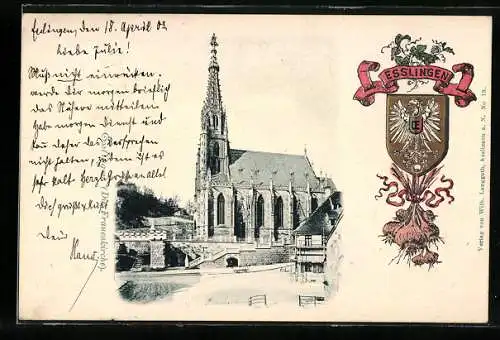 Esslingen, den 18. April 02
Liebe Julie!
Muß nicht einrücken.
werde Dir morgen brieflich
das Nähere mitteilen
habe morgen Dienst und
kan daher das Versprechen
nicht halten, zudem ist es
sehr kalt. Herzl. Grüße an alle!
Dich grüßt & küßt
Dein
Hans
Die Frauenkirche.
ESSLINGEN
E
Verlag von Wilh. Langguth, Esslingen a. N. No 19.